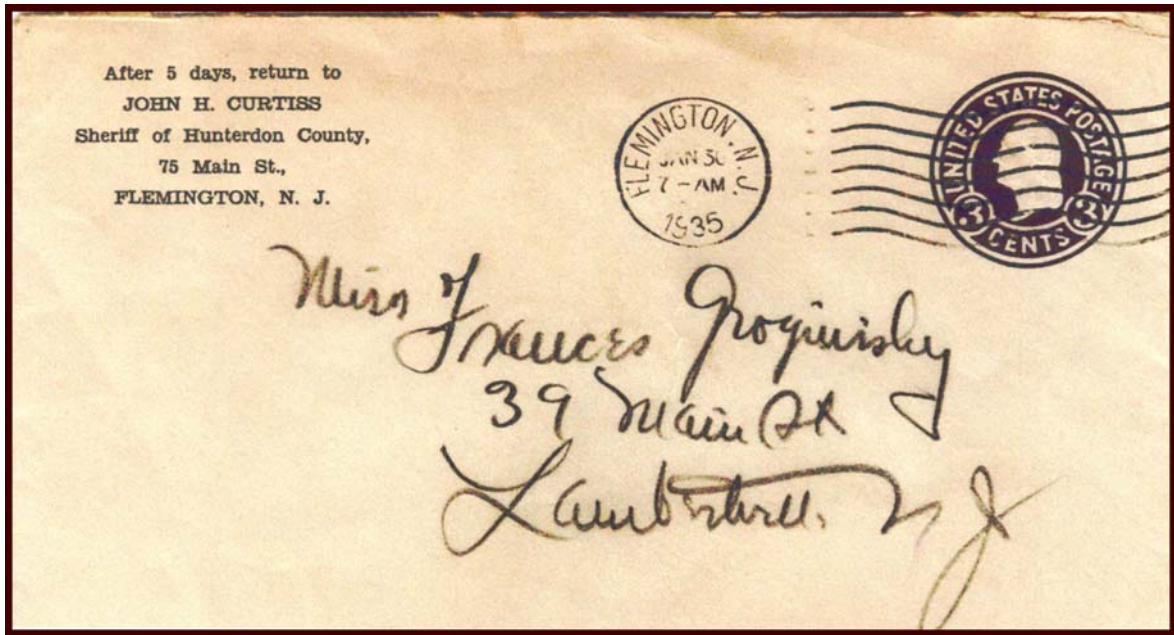 After 5 days, return to
JOHN H. CURTISS
Sheriff of Hunterdon County,
75 Main St.,
FLEMINGTON, N. J.
FLEMINGTON, N.J.
JAN 30
7-AM
1935
UNITED STATES POSTAGE
3 CENTS 3
Miss Frances
39 Main St
Lambertville N J